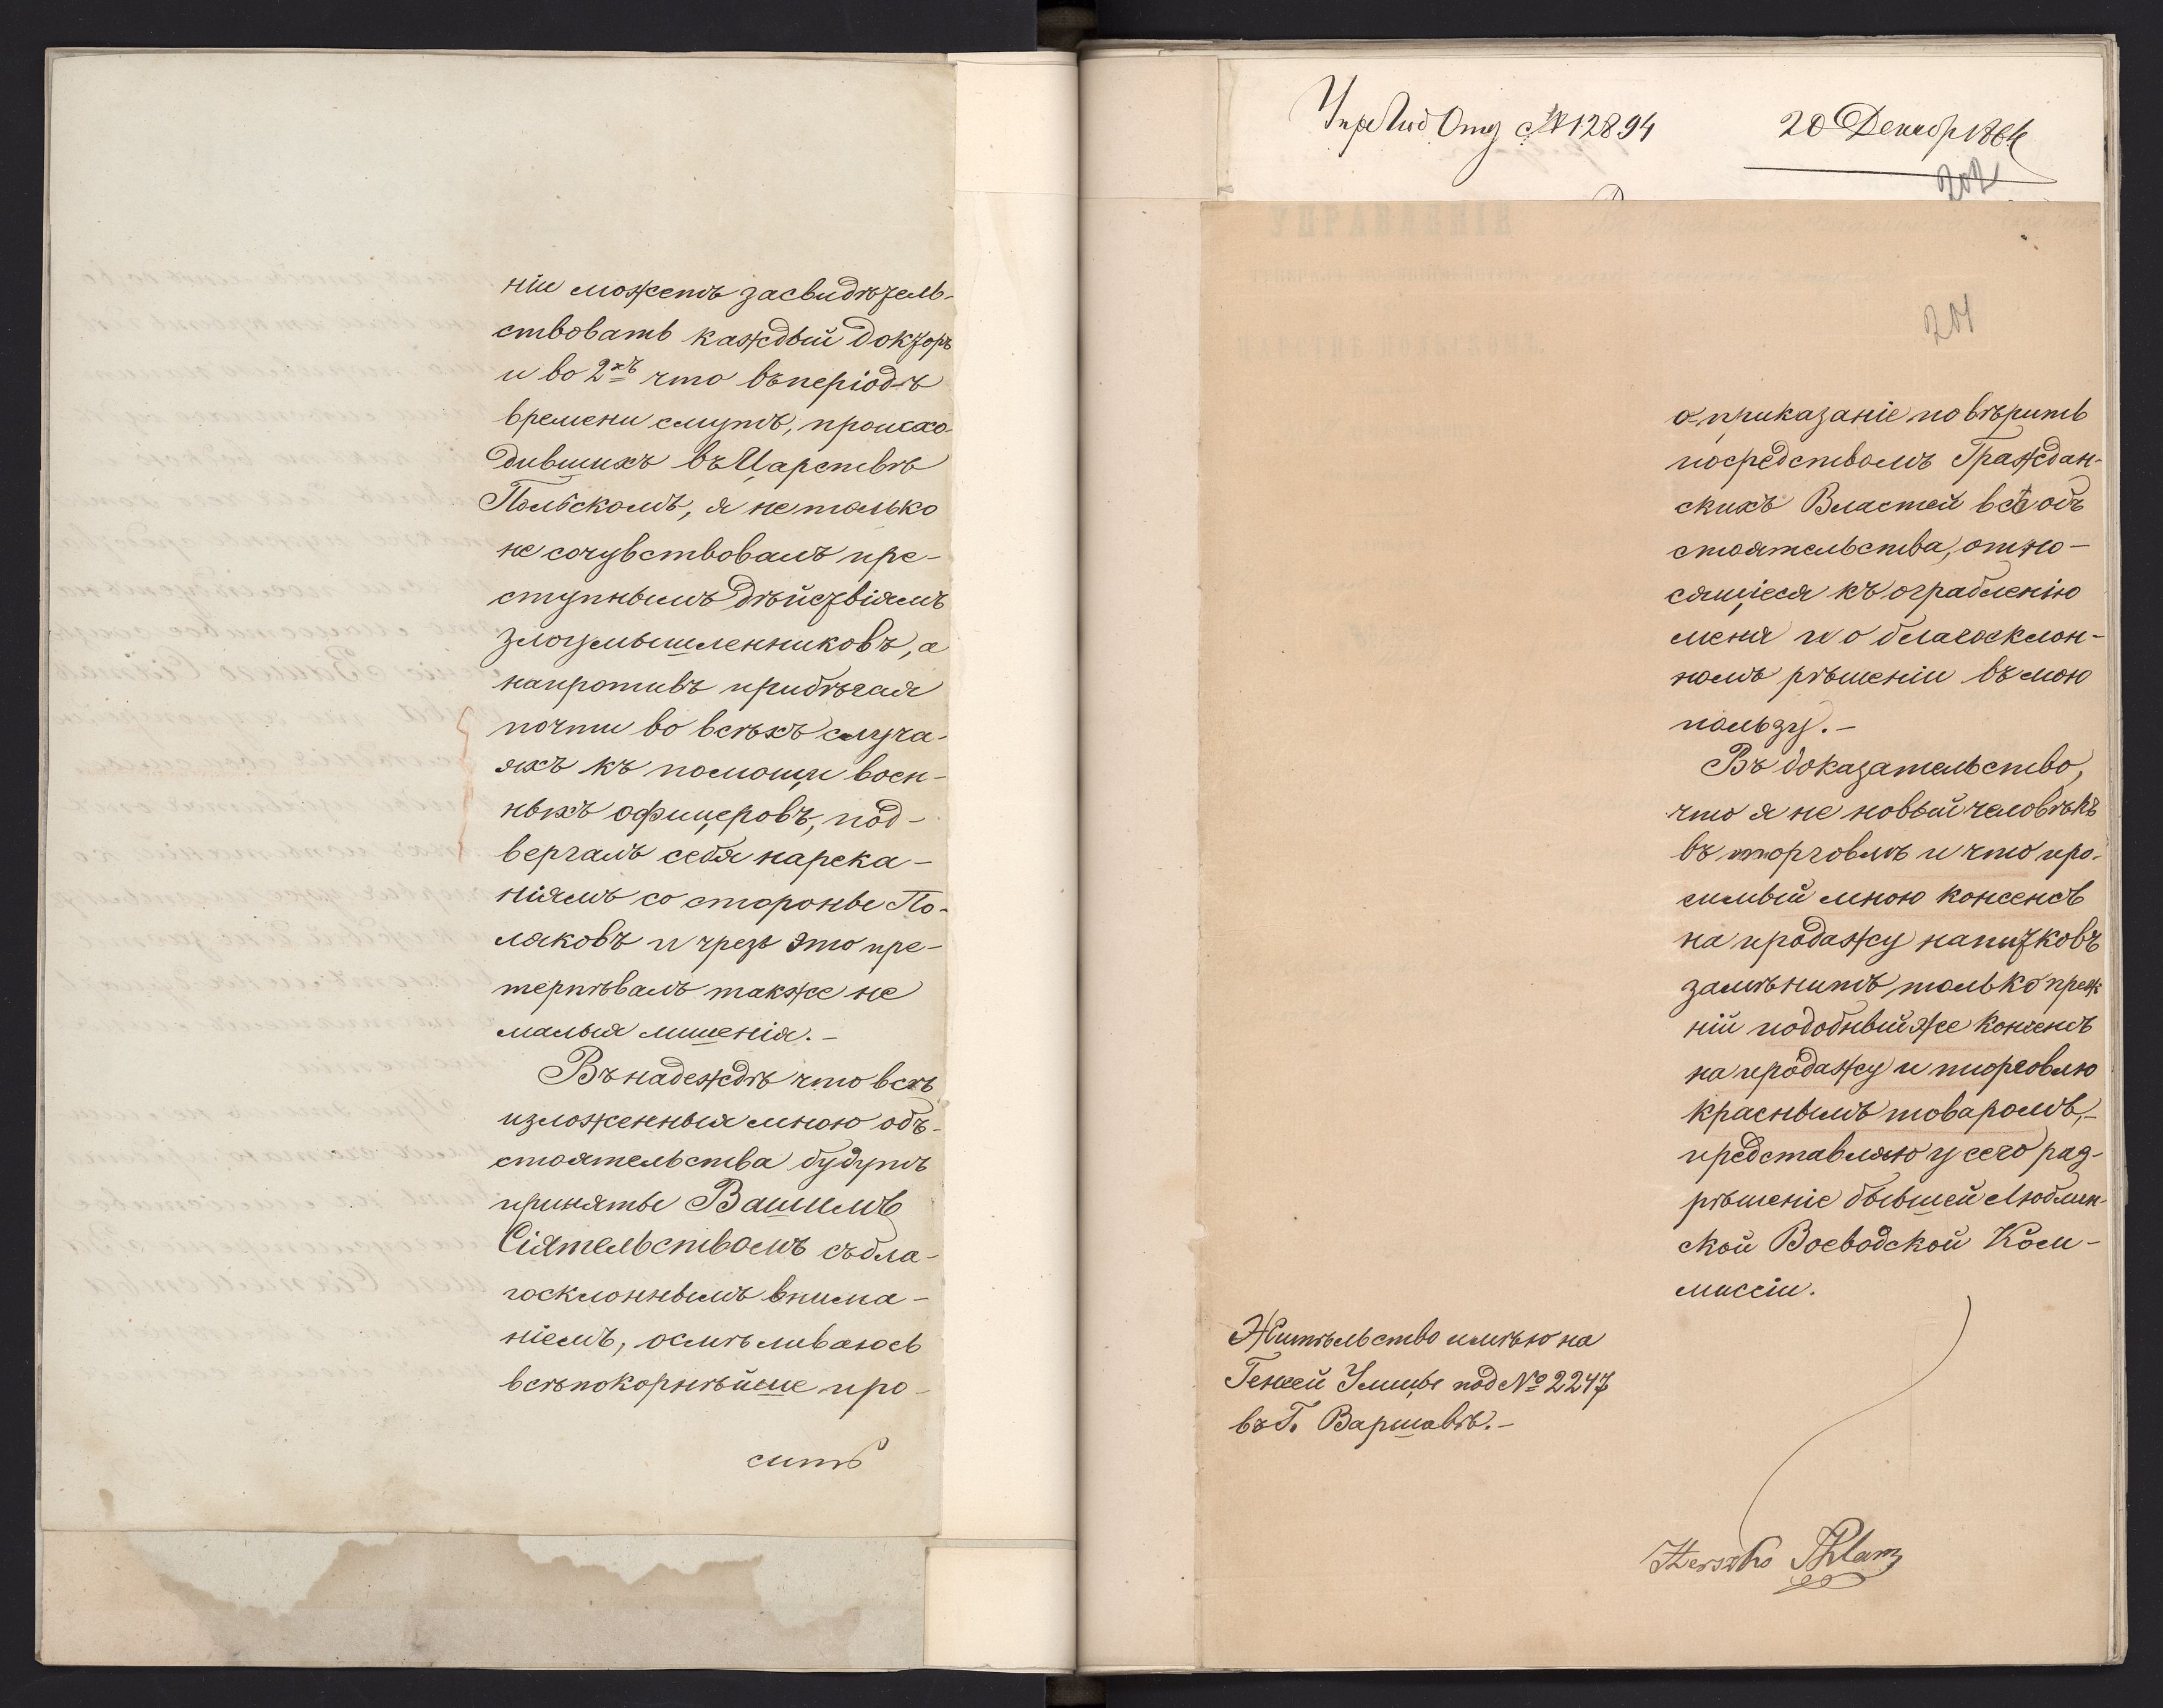 ніи можетъ засвидѣтель-
ствовать каждый докторъ
и во 2хъ что въ періодъ
времени смутъ, происхо-
дившихъ въ Царствѣ
Польскомъ, я не только
не сочувствовалъ пре-
ступнымъ дѣйствіямъ
злоумышленниковъ, а
напротивъ прибѣгая
почти во всѣхъ случа-
яхъ къ помощи воен-
ныхъ офицеровъ, под-
вергалъ себя нарека-
ніямъ со стороны По-
ляковъ и чрезъ это пре-
терпѣвалъ также не
малыя лишенія.-
Въ надеждѣ что всѣ
изложенныя мною об-
стоятельства будутъ
приняты Вашимъ
Сіятельствомъ съ бла-
госклоннымъ внима-
ніемъ, осмѣливаюсь
всѣпокорнѣйше про-
сить
№ 12894 20 Декабр 1864
202
УПРАВЛЕНІЯ
201
о приказаніе повѣрить
посредствомъ Граждан-
скихъ Властей всѣ об
стоятельства, отно-
сящіеся къ ограбленію
меня и о благосклон-
номъ рѣшеніи въ мою
пользу.-
Въ доказательство,
что я не новый человѣкъ
въ торговлѣ и что про-
симый мною консенсъ
на продажу напитковъ
замѣнитъ только преж
ній подобный же консенсъ
на продажу и торговлю
краснымъ товаромъ,-
представляю у сего раз-
рѣшеніе бывшей Люблин-
ской Воеводской Ком-
миссіи.
Житѣльство имѣю на
Генсей Улицы под № 2247
въ Г. Варшавѣ.-
Herszko